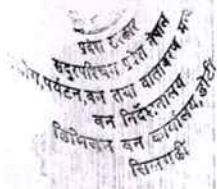 प्रदेश सरकार
सुदूरपश्चिम प्रदेश नेपाल
उद्योग,पर्यटन,वन तथा वातावरण म
वन निर्देशनालय
डिभिजन वन कार्यालय, डोटी
सिलगढी